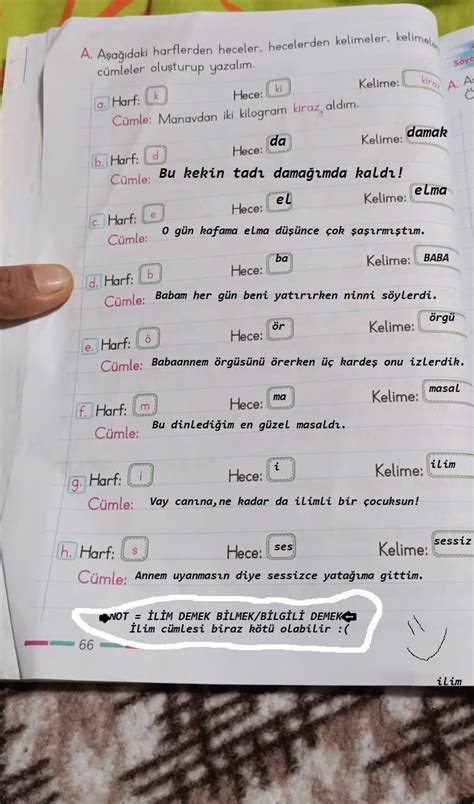 A. Aşağıdaki harflerden heceler, hecelerden kelimeler, kelimeler
cümleler oluşturup yazalım.
a. Harf: k Hece: ki Kelime: kiraz
Cümle: Manavdan iki kilogram kiraz aldım.
b. Harf: d Hece: da Kelime: damak
Cümle: Bu kekin tadı damağımda kaldı!
c. Harf: e Hece: el Kelime: elma
Cümle: O gün kafama elma düşünce çok şaşırmıştım.
d. Harf: b Hece: ba Kelime: BABA
Cümle: Babam her gün beni yatırırken ninni söylerdi.
e. Harf: ö Hece: ör Kelime: örgü
Cümle: Babaannem örgüsünü örerken üç kardeş onu izlerdik.
f. Harf: m Hece: ma Kelime: masal
Cümle: Bu dinlediğim en güzel masaldı.
g. Harf: i Hece: i Kelime: ilim
Cümle: Vay canına,ne kadar da ilimli bir çocuksun!
h. Harf: s Hece: ses Kelime: sessiz
Cümle: Annem uyanmasın diye sessizce yatağıma gittim.
NOT = İLİM DEMEK BİLMEK/BİLGİLİ DEMEK
İlim cümlesi biraz kötü olabilir :(
66
ilim
A.